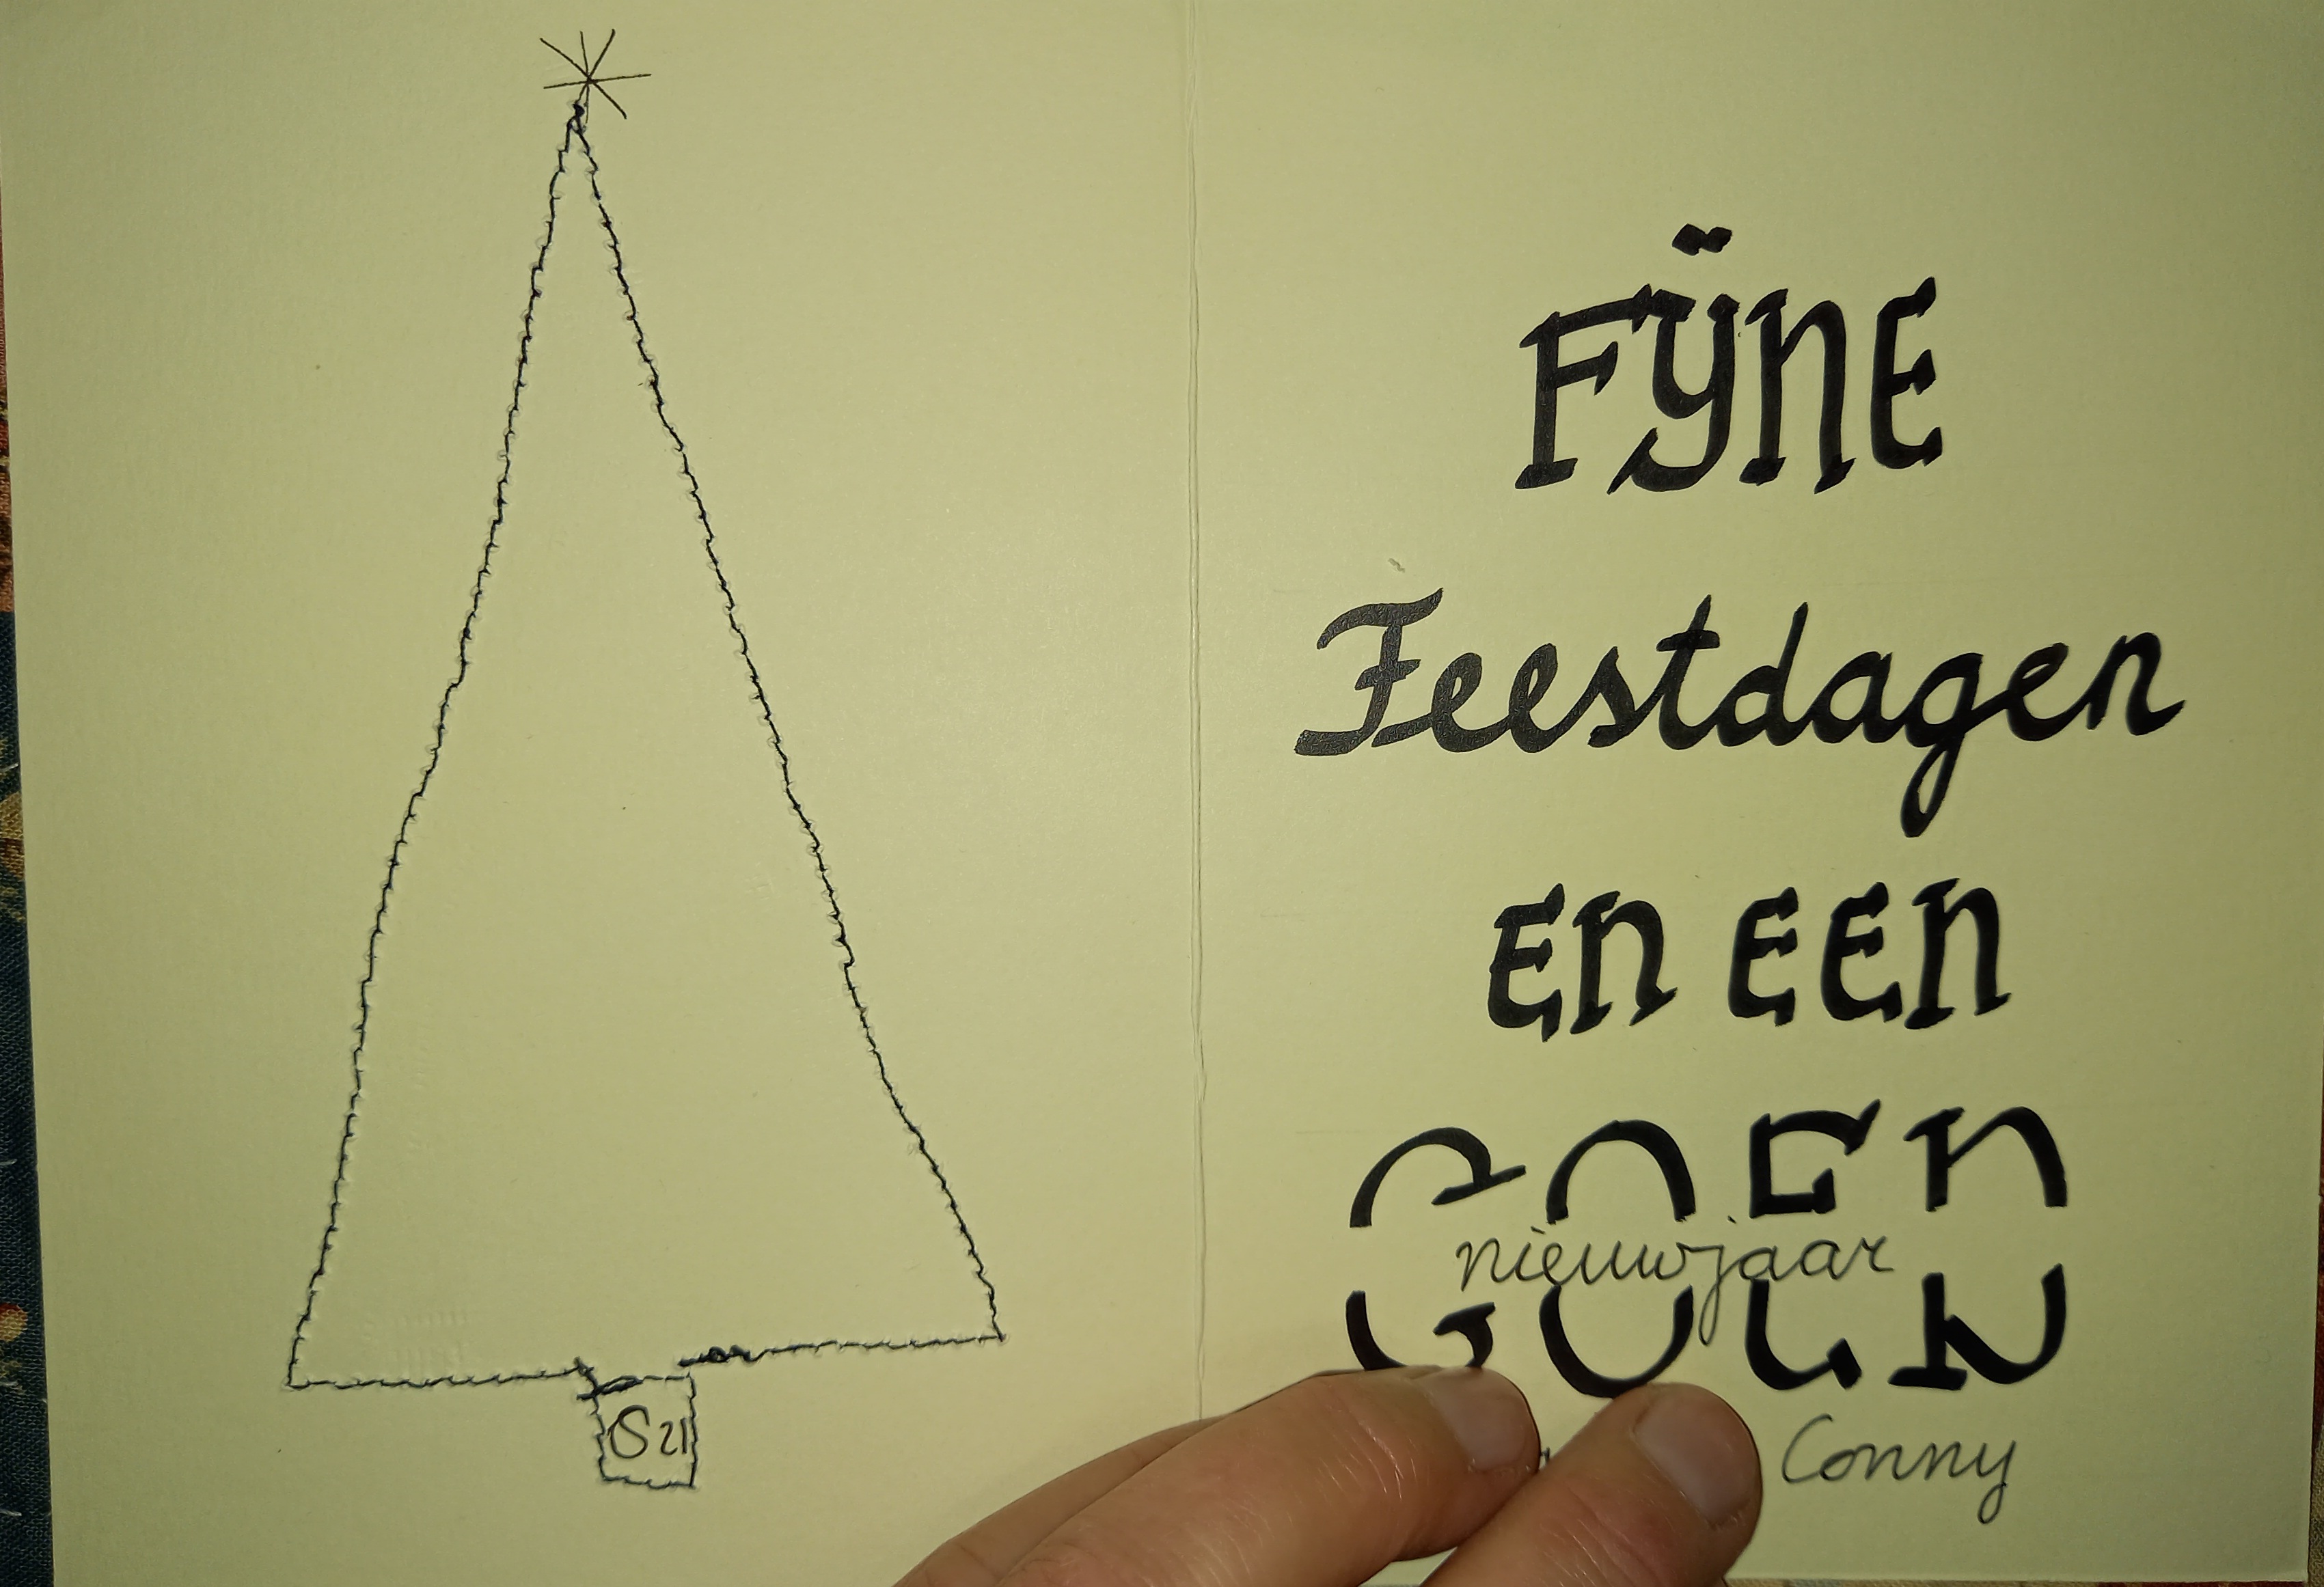 S21
FŸNE
Feestdagen
EN EEN
GOEN
nieuwjaar
Conny